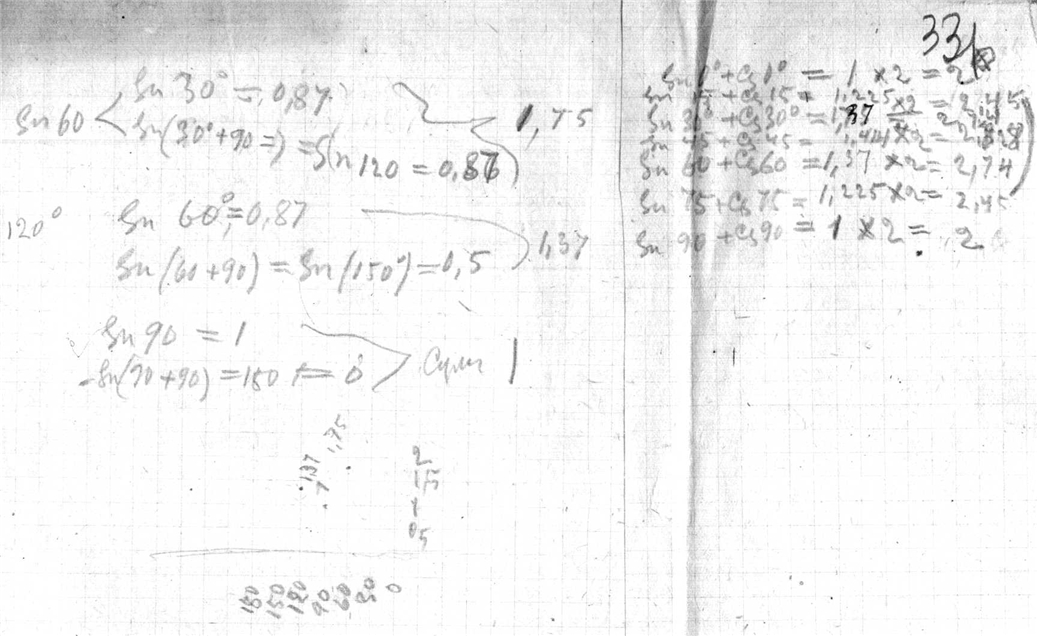 Sn 30° = 0,87
Sn 60
Sn(30°+90=) = Sin 120 = 0,87) 1,75
120° Sn 60° = 0,87
Sn(60+90) = Sn(150°) = 0,5 1,37
Sn 90 = 1
-Sn(90+90) = 180 = 0 Сумм 1
1,37 1,75
1
2
1,5
1
05
180 150 120 90 60 30 0
33
Sn 0° + Cs 0° = 1 × 2 = 2
Sn 15 + Cs 15 = 1,225 × 2 = 2,45
Sn 30 + Cs 30° = 1,37 × 2 = 2,74
Sn 45 + Cs 45 = 1,414 × 2 = 2,828
Sn 60 + Cs 60 = 1,37 × 2 = 2,74
Sn 75 + Cs 75 = 1,225 × 2 = 2,45
Sn 90 + Cs 90 = 1 × 2 = 2